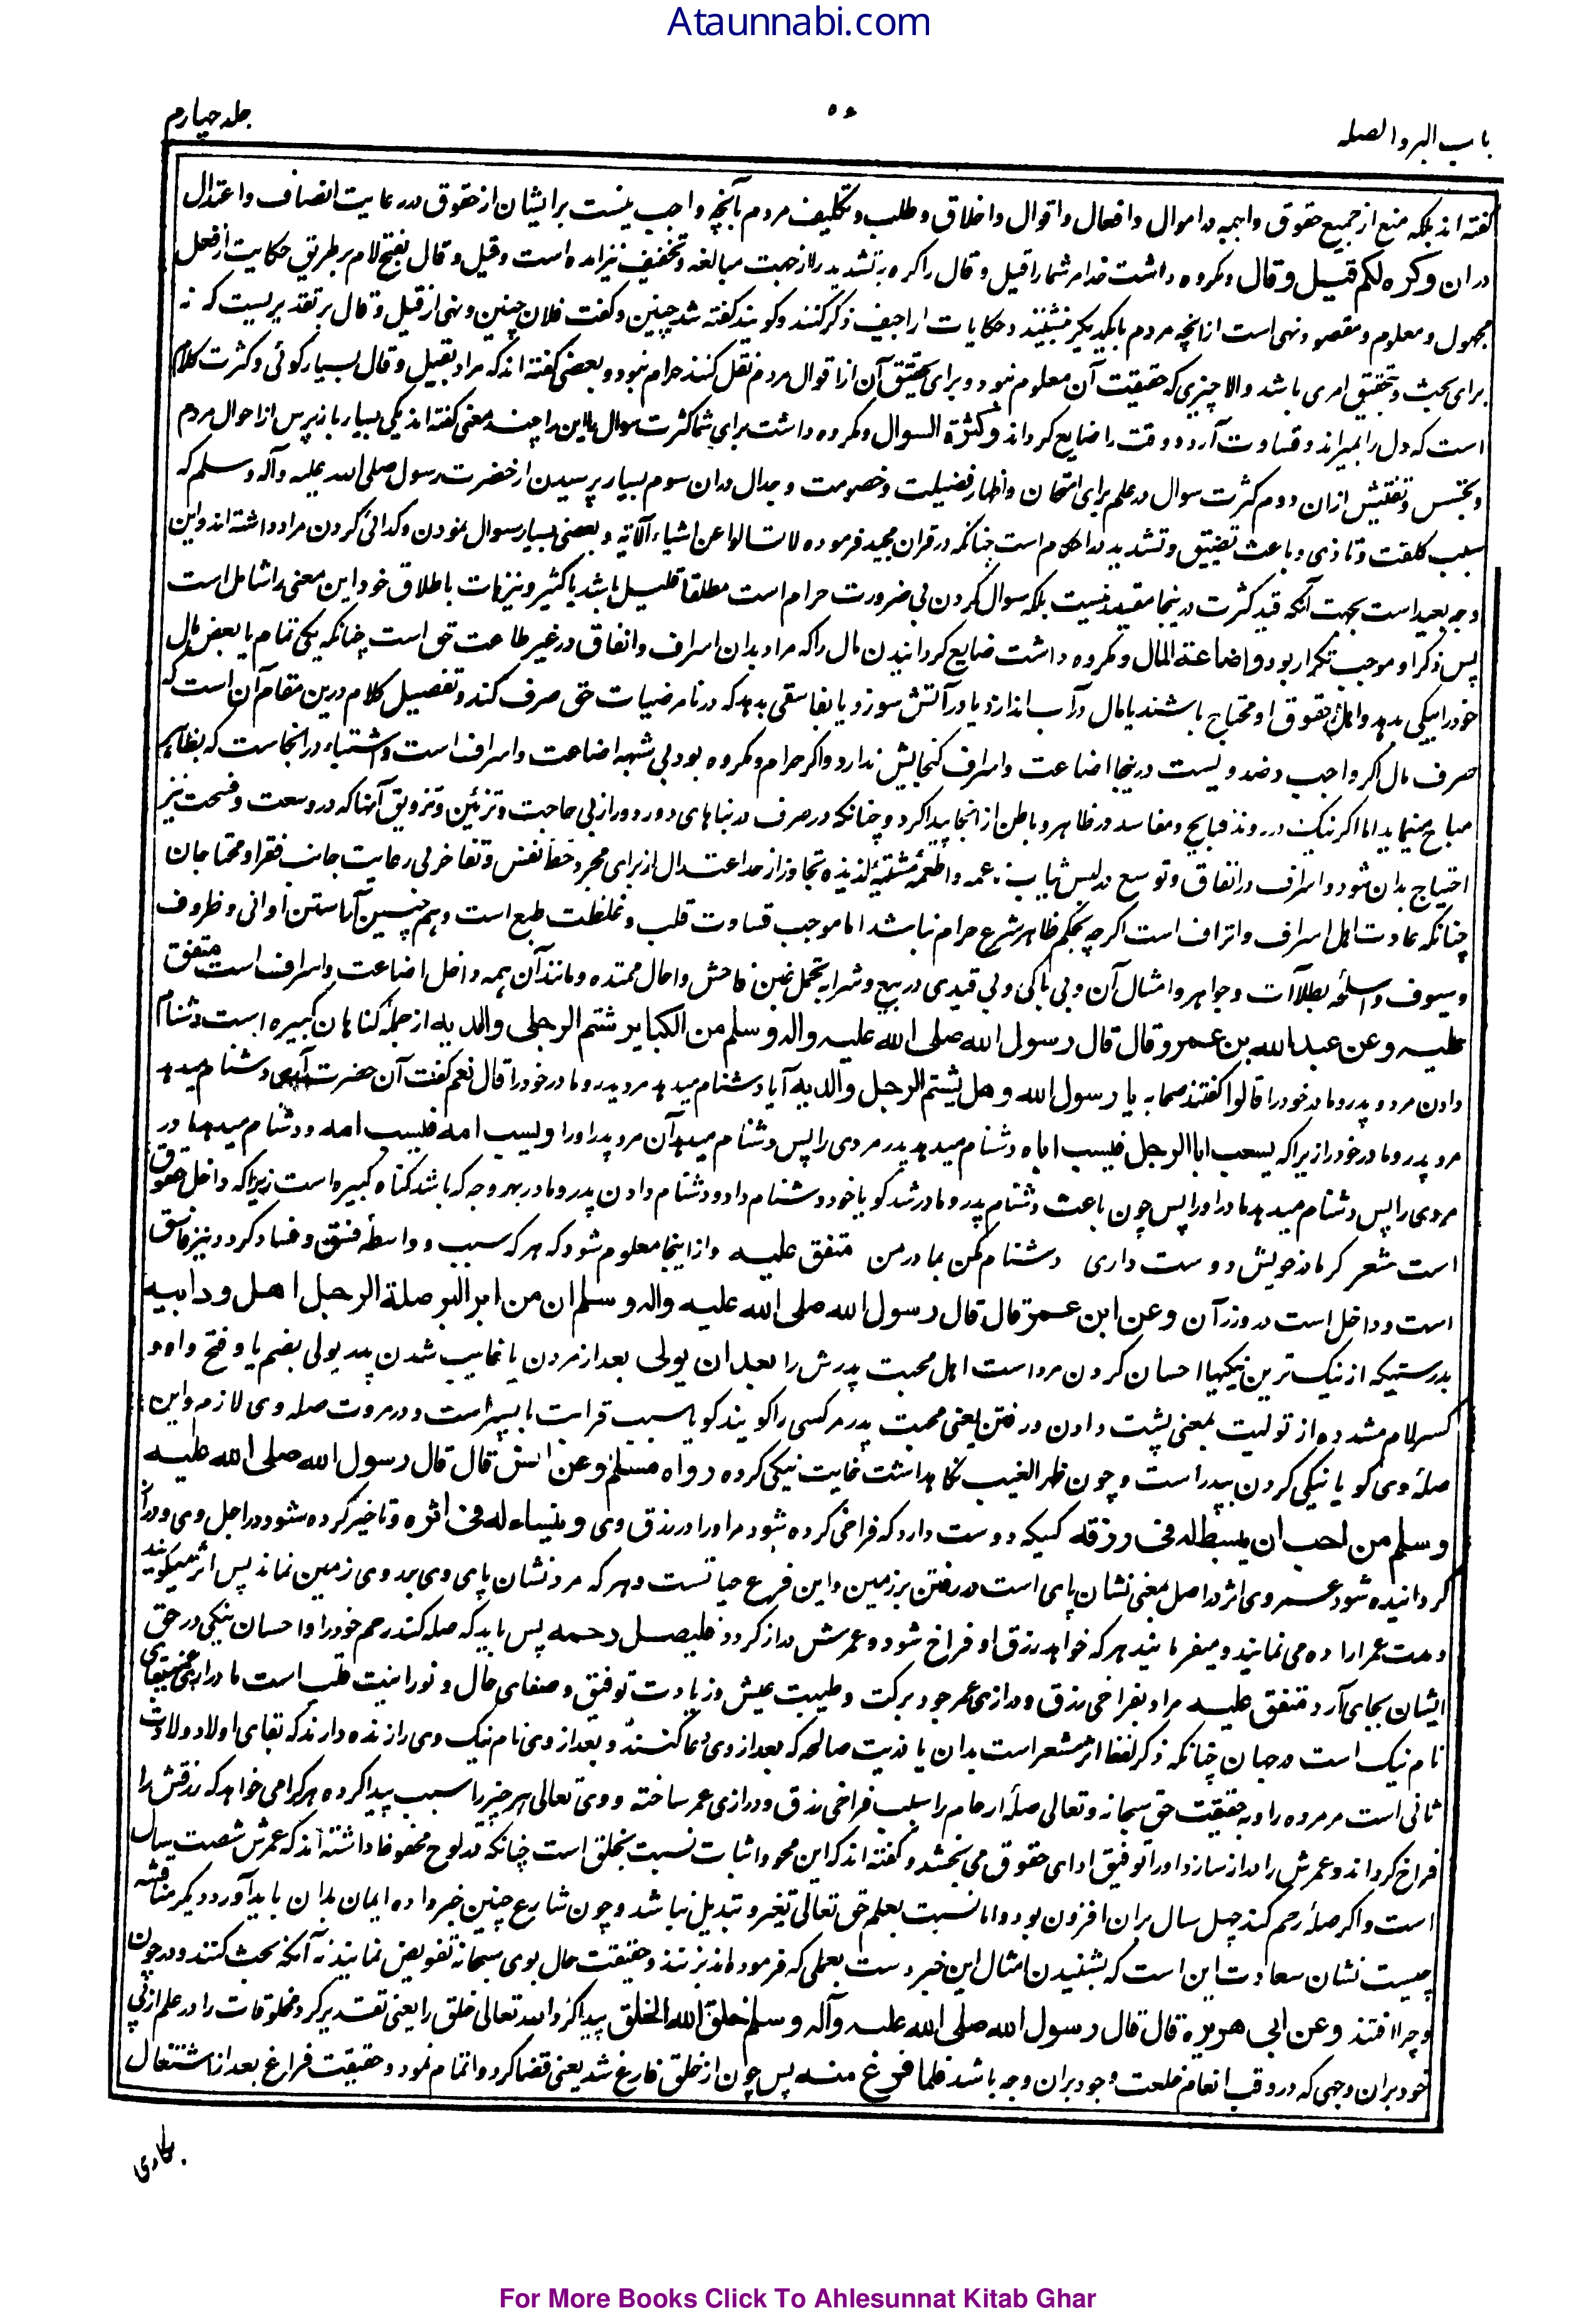 Ataunnabi.com
باب البر والصله
۵۶
جلد چهارم
گفته اند بلکه منع از جمیع حقوق واجبه در اموال و افعال و اقوال و اخلاق و طلب و تکلیف مردم بآنچه واجب نیست برایشان از حقوق در رعایت انصاف و اعتدال
در ان وکره لکم قیل وقال و مکروه داشت خدا مر شما را قیل و قال را کره به تشدید را از جهت مبالغه و تخفیف نیز امده است و قیل و قال بفتح لام بر طریق حکایت از فعل
مجهول و معلوم و مقصود نهی است ازانچه مردم بایکدیگر نشینند و حکایات اراجیف ذکر کنند و گویند گفته شد چنین و گفت فلان چنین و نهی از قیل و قال بر تقدیریست که نه
برای بحث و تحقیق امری باشد والا چیزی که حقیقت آن معلوم نبود و برای تحقیق آن از اقوال مردم نقل کنند حرام نبود و بعضی گفته اند که مراد بقیل و قال بسیار گوئی و کثرت کلام
است که دل را بمیراند و قساوت آرد و وقت را ضایع گرداند وکثرة السوال و مکروه داشت برای شما کثرت سوال را این را چند معنی گفته اند یکی بسیار باز پرس از احوال مردم
و تجسس و تفتیش ازان دوم کثرت سوال در علم برای امتحان و اظهار فضیلت و خصومت و جدال دران سوم بسیار پرسیدن از حضرت رسول صلی الله علیه وآله وسلم که
سبب کلفت و تاذی و باعث تضییق و تشدید در احکام است چنانکه در قران مجید فرموده لا تسالوا عن اشیاء الآیة و بعضی بسیار سوال نمودن و گدائی کردن مراد داشته اند و این
وجه بعید است بجهت آنکه قید کثرت در ینجا مقید نیست بلکه سوال کردن بی ضرورت حرام است مطلقا قلیل باشد یا کثیر و نیز هات باطلاق خود این معنی را شامل است
پس ذکر او موجب تکرار بود واضاعة المال و مکروه داشت ضایع گردانیدن مال را که مراد بدان اسراف و انفاق در غیر طاعت حق است چنانکه یکی تمام یا بعض مال
خود را بیکی بدهد و اهل حقوق او محتاج باشند یا مال در آب اندازد یا در آتش سوزد یا بفاسقی بدهد که در نامرضیات حق صرف کند و تفصیل کلام درین مقام آن است که
صرف مال اگر واجب و ضد و لیست درینجا اضاعت و اسراف گنجایش ندارد و اگر حرام و مکروه بود بی شبهه اضاعت و اسراف است و اشتباه در انجاست که بظاهر
مباح مینماید اما اگر نیک در روند قبایح و مفاسد در ظاهر و باطن از انجا پیدا گردد چنانکه در صرف در بناهای دور دور از بی حاجت و تزئین و تزویق آنها که در وسعت و فسحت نیز
احتیاج بدان نشود و اسراف در انفاق و توسع در لبس ثیاب ناعمه و اطعمه مشتهیه لذیذه تجاوز از حد اعتدال از برای مجرد حظ نفس و تفاخر بی رعایت جانب فقرا و محتاجان
چنانکه عادت اهل اسراف و اتراف است اگرچه بحکم ظاهر شرع حرام نباشد اما موجب قساوت قلب و غلظت طبع است و هم چنین آراستن اوانی و ظروف
و سیوف و اسلحه بطلاآت و جواهر و امثال آن و بی باکی و بی قیدی در بیع و شرا به تحمل غبن فاحش و احال ممتده و مانند آن همه داخل اضاعت و اسراف است متفق
علیه وعن عبد الله بن عمرو قال قال رسول الله صلی الله علیه واله وسلم من الکبایر شتم الرجل والدیه از جمله گناهان کبیره است دشنام
دادن مرد و پدر و مادر خود را قالوا گفتند صحابه یا رسول الله وهل یشتم الرجل والدیه آیا دشنام میدهد مرد پدر و مادر خود را قال نعم گفت آن حضرت آری دشنام میدهد
مرد پدر و مادر خود را زیرا که یسب ابا الرجل فیسب اباه دشنام میدهد پدر مردی را پس دشنام میدهد آن مرد پدر او را ویسب امه فیسب امه و دشنام میدهد مادر
مردی را پس دشنام میدهد مادر او را پس چون باعث دشنام پدر و مادر شد گویا خود دشنام داد و دشنام دادن پدر و مادر بهر وجه که باشد گناه کبیره است زیرا که داخل حقوق
است شعر گر مادر خویش دوست داری دشنام مکن بمادر من متفق علیه و از اینجا معلوم شود که هر که سبب و واسطه فسق و فساد گردد نیز فاسق
است و داخل است در وزر آن وعن ابن عمر قال قال رسول الله صلی الله علیه واله وسلم ان من ابر البر صلة الرجل اهل ود ابیه
بدرستیکه از نیک ترین نیکیها احسان کردن مرد است اهل محبت پدرش را بعد ان یولی بعد از مردن یا غایب شدن پدر یولی بضم یا و فتح واو و
کسر لام مشدده از تولیت بمعنی پشت دادن و رفتن یعنی محبت پدر مر کسی را گویند گویا سبب قرابت با پسر است و در مروت صله وی لازم و این
صلهٔ وی گویا نیکی کردن بپدر است و چون ظهر الغیب نگاهداشت غایت نیکی کرده رواه مسلم وعن انس قال قال رسول الله صلی الله علیه
وسلم من احب ان یبسط له فی رزقه کسیکه دوست دارد که فراخی کرده شود مر او را در رزق وی وینساء له فی اثره و تاخیر کرده شود در اجل وی و دراز
گردانیده شود عمر وی اثر در اصل معنی نشان پای است در رفتن بر زمین و این فرع حیاتست و هر که مرد نشان پای وی بر روی زمین نماند پس اثر میگویند
و مدت عمر اراده می نمایند و میفرمایند هر که خواهد رزق او فراخ شود و عمرش دراز گردد فلیصل رحمه پس باید که صله کند رحم خود را و احسان نیکی در حق
ایشان بجای آرد متفق علیه مراد بفراخی رزق و درازی عمر وجود برکت و طیبت عیش و زیادت توفیق و صفای حال و نورانیت قلب است
نام نیک است در جهان چنانکه ذکر لفظ اثر مشعر است بدان یا ذریت صالحه که بعد از وی دعا کنند و بعد از وی نام نیک وی را زنده دارند که بقای اولاد ولادت
ثانی است مر مرده را و به حقیقت حق سبحانه و تعالی صلهٔ ارحام را سبب فراخی رزق و درازی عمر ساخته و وی تعالی هر چیز را سبب پیدا کرده هر کرا می خواهد که رزقش را
فراخ گرداند و عمرش را دراز سازد او را توفیق ادای حقوق می بخشد و گفته اند که این محو و اثبات نسبت بخلق است چنانکه در لوح محفوظ داشته اند که عمرش شصت سال
است و اگر صلهٔ رحم کند چهل سال بران افزون بود و اما نسبت بعلم حق تعالی تغیر و تبدیل نباشد و چون شارع چنین خبر داده ایمان بدان باید آورد و دیگر مناقشه
چیست نشان سعادت این است که بشنیدن امثال این خبر دست بعملی که فرموده اند بزنند و حقیقت حال بوی سبحانه تفویض نمایند نه آنکه بحث کنند و در چون
و چرا افتند وعن ابی هریرة قال قال رسول الله صلی الله علیه وآله وسلم خلق الله الخلق پیدا کرد الله تعالی خلق را یعنی تقدیر کرد مخلوقات را در علم ازلی
خود بران وجهی که در وقت انعام خلعت وجود بران وجه باشد فلما فرغ منه پس چون از خلق فارغ شد یعنی قضا کرد و اتمام نمود و حقیقت فراغ بعد از اشتغال
For More Books Click To Ahlesunnat Kitab Ghar